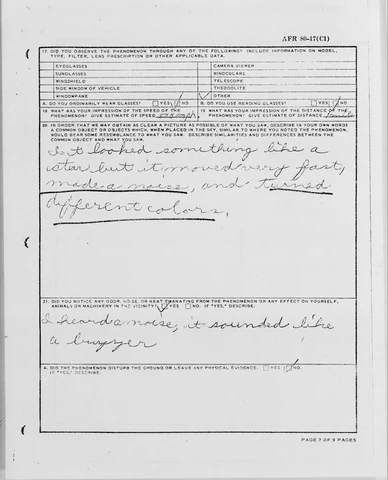 AFR 80-17(C1)
17. DID YOU OBSERVE THE PHENOMENON THROUGH ANY OF THE FOLLOWING? INCLUDE INFORMATION ON MODEL,
TYPE, FILTER, LENS PRESCRIPTION OR OTHER APPLICABLE DATA.
EYEGLASSES CAMERA VIEWER
SUNGLASSES BINOCULARS
WINDSHIELD TELESCOPE
SIDE WINDOW OF VEHICLE THEODOLITE
WINDOWPANE OTHER
A. DO YOU ORDINARILY WEAR GLASSES? YES NO B. DO YOU USE READING GLASSES? YES NO
18. WHAT WAS YOUR IMPRESSION OF THE SPEED OF THE PHENOMENON? GIVE ESTIMATE OF SPEED
19. WHAT WAS YOUR IMPRESSION OF THE DISTANCE OF THE PHENOMENON? GIVE ESTIMATE OF DISTANCE
20. IN ORDER THAT WE MAY OBTAIN AS CLEAR A PICTURE AS POSSIBLE OF WHAT YOU SAW, DESCRIBE IN YOUR OWN WORDS
A COMMON OBJECT OR OBJECTS WHICH, WHEN PLACED IN THE SKY, SIMILAR TO WHERE YOU NOTED THE PHENOMENON,
WOULD BEAR SOME RESEMBLANCE TO WHAT YOU SAW. DESCRIBE SIMILARITIES AND DIFFERENCES BETWEEN THE
COMMON OBJECT AND WHAT YOU SAW.
looked something like a
star but it moved very fast,
made a noise, and turned
different colors.
21. DID YOU NOTICE ANY ODOR, NOISE, OR HEAT EMANATING FROM THE PHENOMENON OR ANY EFFECT ON YOURSELF,
ANIMALS OR MACHINERY IN THE VICINITY? YES NO. IF "YES," DESCRIBE.
I heard a noise, it sounded like
a buzzer
A. DID THE PHENOMENON DISTURB THE GROUND OR LEAVE ANY PHYSICAL EVIDENCE. YES NO.
IF "YES," DESCRIBE.
PAGE 7 OF 9 PAGES